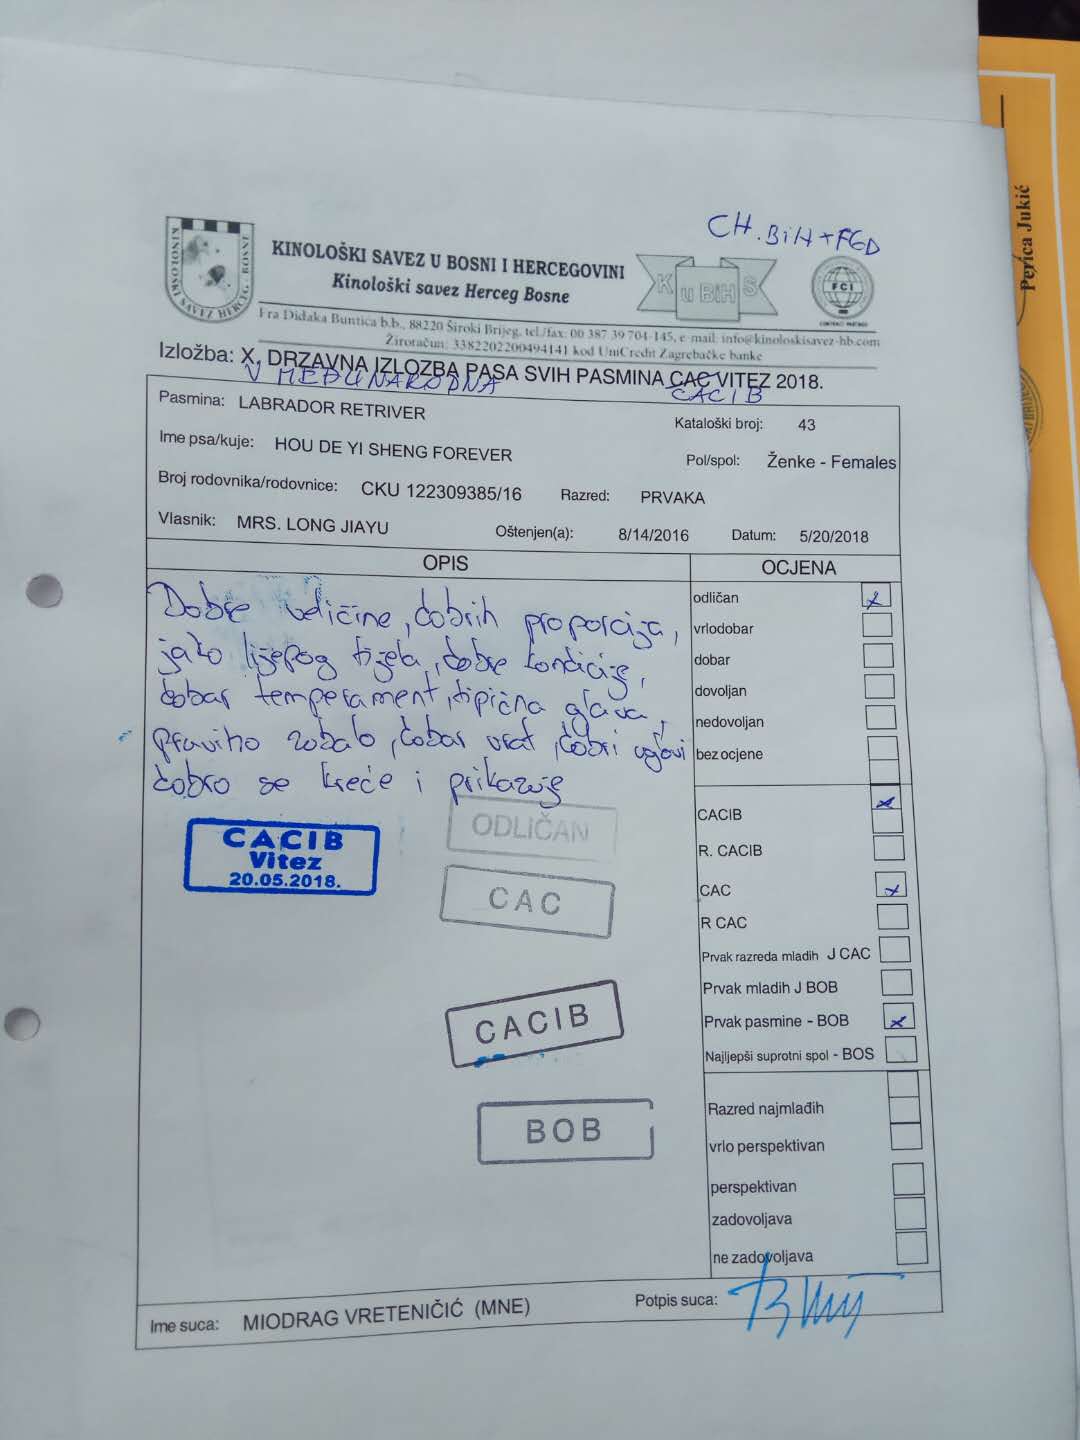 CH. BiH + FGD
KINOLOŠKI SAVEZ HERCEG - BOSNE
KINOLOŠKI SAVEZ U BOSNI I HERCEGOVINI
Kinološki savez Herceg Bosne
K u BiH S
FCI
CONTRACT PARTNER
Fra Didaka Buntića b.b., 88220 Široki Brijeg, tel./fax: 00 387 39 704-145, e-mail: info@kinoloskisavez-hb.com
Žiroračun: 3382202200494141 kod UniCredit Zagrebačke banke
Izložba: X. DRZAVNA IZLOZBA PASA SVIH PASMINA CAC VITEZ 2018.
V MEĐUNARODNA CACIB
Pasmina: LABRADOR RETRIVER Kataloški broj: 43
Ime psa/kuje: HOU DE YI SHENG FOREVER Pol/spol: Ženke - Females
Broj rodovnika/rodovnice: CKU 122309385/16 Razred: PRVAKA
Vlasnik: MRS. LONG JIAYU Oštenjen(a): 8/14/2016 Datum: 5/20/2018
OPIS
Dobre veličine, dobrih proporcija,
jako lijepog tijela, dobre kondicije,
dobar temperament, tipična glava,
pravilno zubalo, dobar vrat, dobri uglovi
dobro se kreće i prikazuje
CACIB
Vitez
20.05.2018.
ODLIČAN
CAC
CACIB
BOB
OCJENA
odličan x
vrlodobar
dobar
dovoljan
nedovoljan
bez ocjene
CACIB x
R. CACIB
CAC x
R CAC
Prvak razreda mladih J CAC
Prvak mladih J BOB
Prvak pasmine - BOB x
Najljepši suprotni spol - BOS
Razred najmlađih
vrlo perspektivan
perspektivan
zadovoljava
ne zadovoljava
Ime suca: MIODRAG VRETENIČIĆ (MNE) Potpis suca:
Perica Jukić